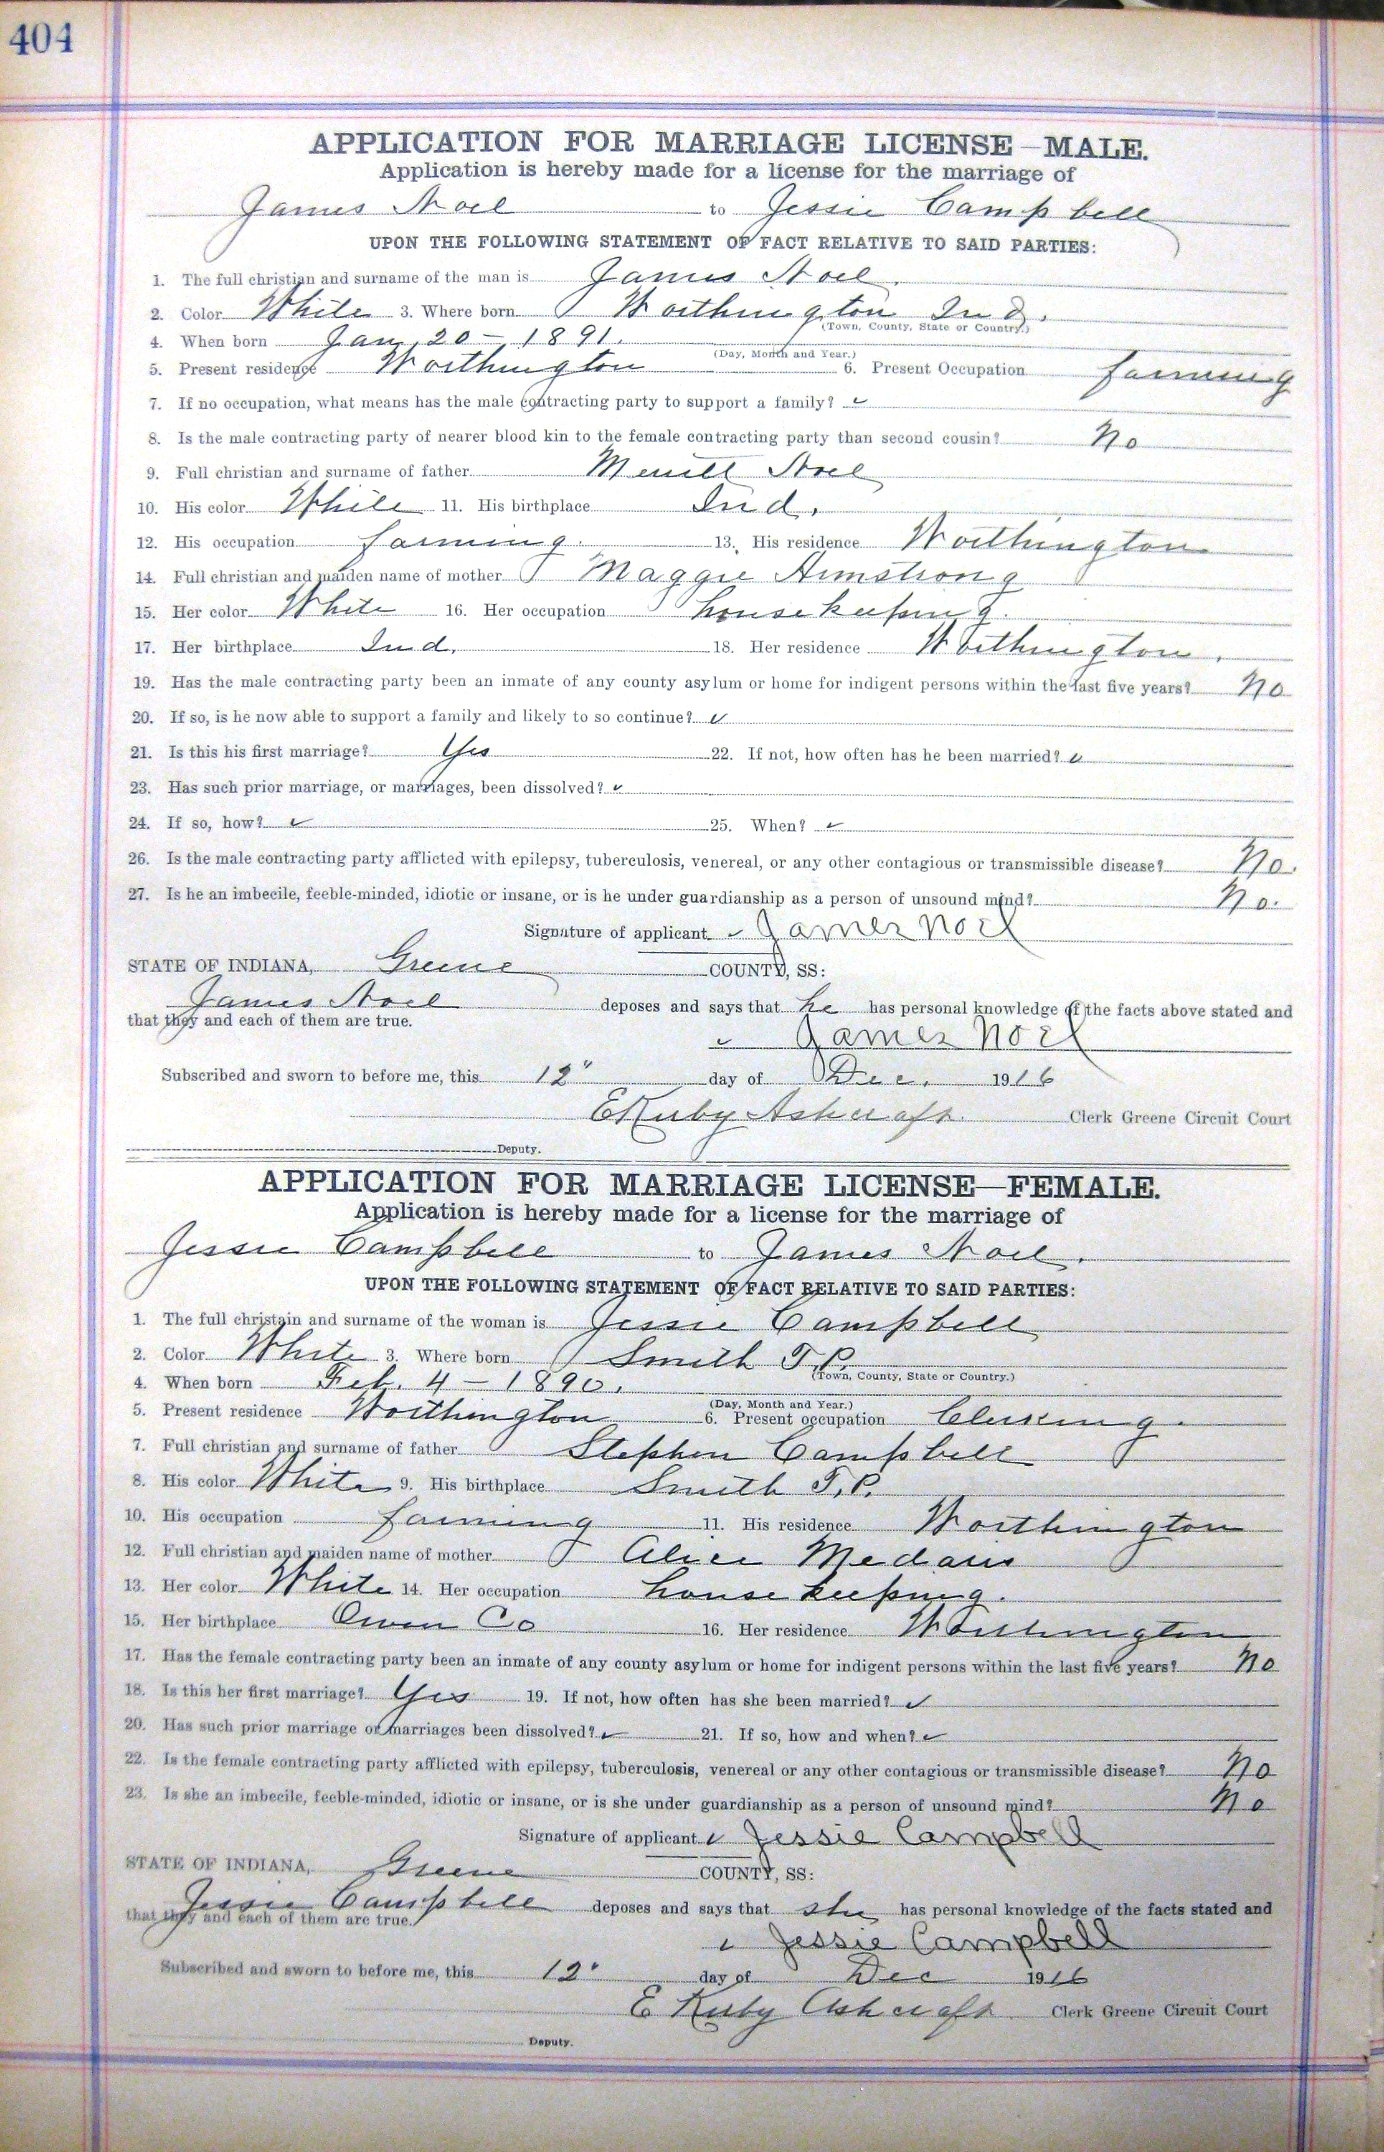 404
APPLICATION FOR MARRIAGE LICENSE—MALE.
Application is hereby made for a license for the marriage of
James Noel to Jessie Campbell
UPON THE FOLLOWING STATEMENT OF FACT RELATIVE TO SAID PARTIES:
1. The full christian and surname of the man is James Noel.
2. Color White 3. Where born Worthington Ind.
(Town, County, State or Country.)
4. When born Jan. 20 - 1891.
(Day, Month and Year.)
5. Present residence Worthington 6. Present Occupation farming
7. If no occupation, what means has the male contracting party to support a family? ✓
8. Is the male contracting party of nearer blood kin to the female contracting party than second cousin? No
9. Full christian and surname of father Merritt Noel
10. His color White 11. His birthplace Ind.
12. His occupation farming. 13. His residence Worthington
14. Full christian and maiden name of mother Maggie Armstrong
15. Her color White 16. Her occupation housekeeping.
17. Her birthplace Ind. 18. Her residence Worthington.
19. Has the male contracting party been an inmate of any county asylum or home for indigent persons within the last five years? No
20. If so, is he now able to support a family and likely to so continue? ✓
21. Is this his first marriage? Yes 22. If not, how often has he been married? ✓
23. Has such prior marriage, or marriages, been dissolved? ✓
24. If so, how? ✓ 25. When? ✓
26. Is the male contracting party afflicted with epilepsy, tuberculosis, venereal, or any other contagious or transmissible disease? No.
27. Is he an imbecile, feeble-minded, idiotic or insane, or is he under guardianship as a person of unsound mind? No.
Signature of applicant ✓ James Noel
STATE OF INDIANA, Greene COUNTY, SS:
James Noel deposes and says that he has personal knowledge of the facts above stated and
that they and each of them are true.
✓ James Noel
Subscribed and sworn to before me, this 12" day of Dec. 1916
E Kirby Ashcraft. Clerk Greene Circuit Court
Deputy.
APPLICATION FOR MARRIAGE LICENSE—FEMALE.
Application is hereby made for a license for the marriage of
Jessie Campbell to James Noel.
UPON THE FOLLOWING STATEMENT OF FACT RELATIVE TO SAID PARTIES:
1. The full christain and surname of the woman is Jessie Campbell
2. Color White 3. Where born Smith T.P.
(Town, County, State or Country.)
4. When born Feb. 4 - 1890.
(Day, Month and Year.)
5. Present residence Worthington 6. Present occupation Clerking.
7. Full christian and surname of father Stephen Campbell
8. His color White 9. His birthplace Smith T.P.
10. His occupation farming 11. His residence Worthington
12. Full christian and maiden name of mother Alice Medaris
13. Her color White 14. Her occupation housekeeping.
15. Her birthplace Owen Co 16. Her residence Worthington
17. Has the female contracting party been an inmate of any county asylum or home for indigent persons within the last five years? No
18. Is this her first marriage? Yes 19. If not, how often has she been married? ✓
20. Has such prior marriage or marriages been dissolved? ✓ 21. If so, how and when? ✓
22. Is the female contracting party afflicted with epilepsy, tuberculosis, venereal or any other contagious or transmissible disease? No
23. Is she an imbecile, feeble-minded, idiotic or insane, or is she under guardianship as a person of unsound mind? No
Signature of applicant ✓ Jessie Campbell
STATE OF INDIANA, Greene COUNTY, SS:
Jessie Campbell deposes and says that she has personal knowledge of the facts stated and
that they and each of them are true.
✓ Jessie Campbell
Subscribed and sworn to before me, this 12" day of Dec 1916
E Kirby Ashcraft Clerk Greene Circuit Court
Deputy.